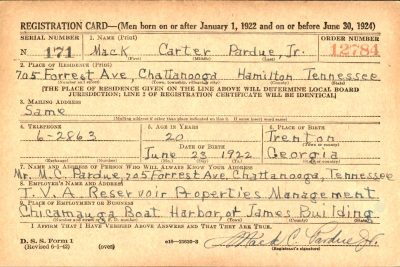 REGISTRATION CARD—(Men born on or after January 1, 1922 and on or before June 30, 1924)
SERIAL NUMBER 1. NAME (Print) ORDER NUMBER
N 171 Mack Carter Pardue, Jr. 12784
(First) (Middle) (Last)
2. PLACE OF RESIDENCE (Print)
705 Forrest Ave, Chattanooga Hamilton Tennessee
(Number and street) (Town, township, village, or city) (County) (State)
[THE PLACE OF RESIDENCE GIVEN ON THE LINE ABOVE WILL DETERMINE LOCAL BOARD
JURISDICTION; LINE 2 OF REGISTRATION CERTIFICATE WILL BE IDENTICAL]
3. MAILING ADDRESS
Same
(Mailing address if other than place indicated on line 2. If same insert word same)
4. TELEPHONE 5. AGE IN YEARS 6. PLACE OF BIRTH
6-2863 20 Trenton
DATE OF BIRTH (Town or county)
June 23 1922 Georgia
(Exchange) (Number) (Mo.) (Day) (Yr.) (State or country)
7. NAME AND ADDRESS OF PERSON WHO WILL ALWAYS KNOW YOUR ADDRESS
Mr. M.C. Pardue, 705 Forrest Ave, Chattanooga, Tennessee
8. EMPLOYER'S NAME AND ADDRESS
T.V.A. Reservoir Properties Management
9. PLACE OF EMPLOYMENT OR BUSINESS
Chicamauga Boat Harbor, at James Building
(Number and street or R. F. D. number) (Town) (County) (State)
I AFFIRM THAT I HAVE VERIFIED ABOVE ANSWERS AND THAT THEY ARE TRUE.
D. S. S. Form 1
(Revised 6-9-41) (over) Mack C. Pardue Jr.
(Registrant's signature)